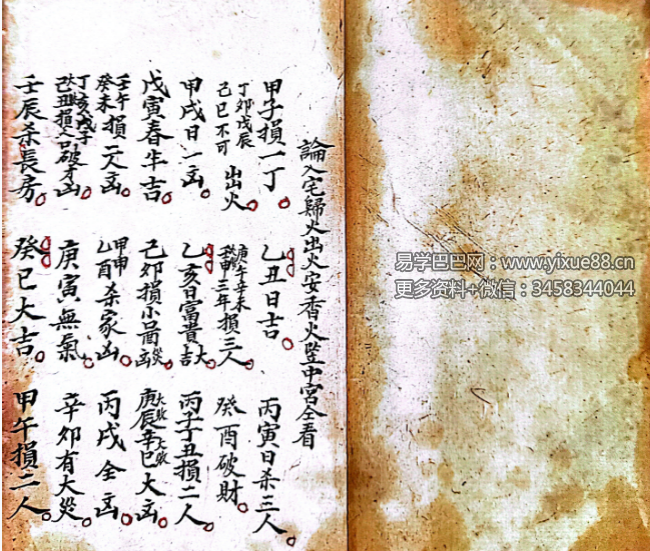 論入宅歸火出火安香火豎中宮仝看
甲子損一丁 乙丑日吉 丙寅日杀三人
丁卯戊辰己巳不可出火 庚午辛未壬申三年損三人 癸酉破財
甲戌日一凶 乙亥日富貴大吉 丙子丁丑損二人
戊寅春牛吉 己卯損小苗災凶 庚辰辛巳大凶
壬午癸未損二人凶 甲申乙酉杀家凶 丙戌仝凶
丁亥戊子己丑損破才凶 庚寅無氣 辛卯有大災
壬辰杀長房 癸巳大吉 甲午損二人
易学巴巴网：www.yixue88.cn
更多资料+微信：3458344044